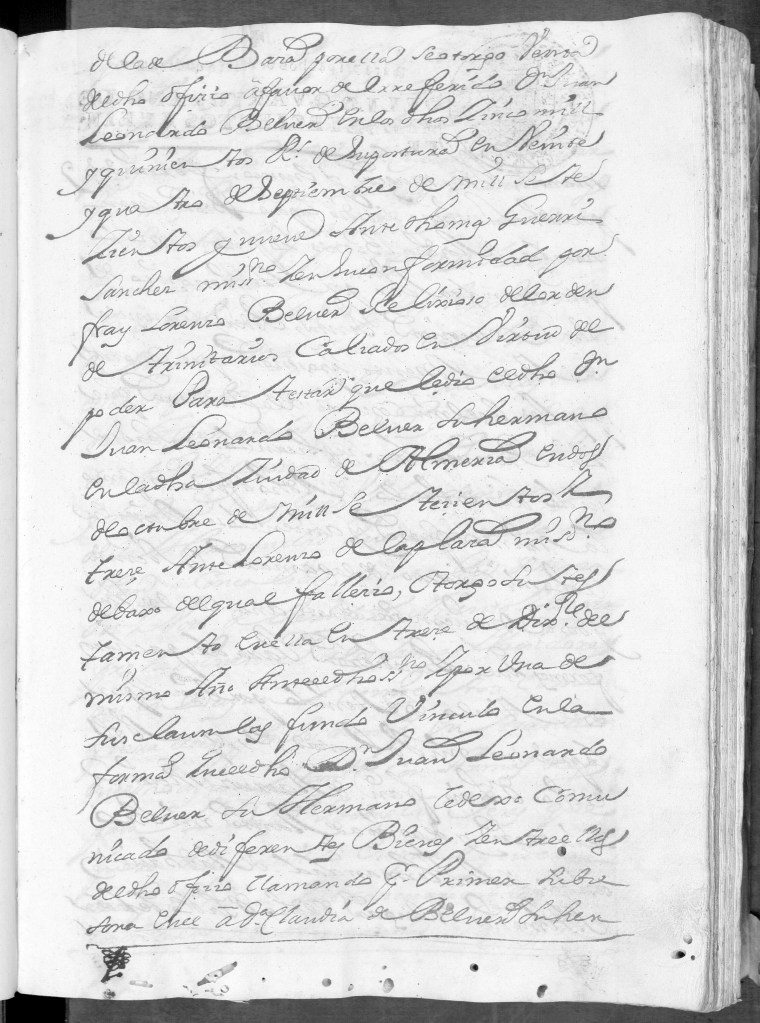 de la de Baza por ella se otorgo Venta
del dho ofizio â fauor del rreferido Dn Juan
Leonardo Beluer en los dhos Zinco mill
y quinientos Rs. de su postura en Veinte
y quatro de Septiembre de mill sete
Zientos y nueve Ante thoma Guerri
Sanchez mi ssno Y en su conformidad por
fray Lorenzo Beluer Relixioso del orden
de trinitarios Calzados en Virtud del
poder Para testar que le dio el dho Dn
Juan Leonardo Beluer su hermano
en la dha Ziudad de Almeria en dos
de octubre de mill setezientos y
treze Ante Lorenzo de la plaza mi ssno
debaxo del qual fallezio, otorgo su tes
tamento en ella en treze de Dizre del
mismo Año Ante el dho ssno Y por Una de
sus clausulas fundo Vinculo en la
forma que el dho Dn Juan Leonardo
Beluer su Hermano le dexo Comu
nicado de diferentes Bienes Y entre ellos
del dho ofizio llamando Pr Primer subze
sora en el â Da Claudia de Beluer su her